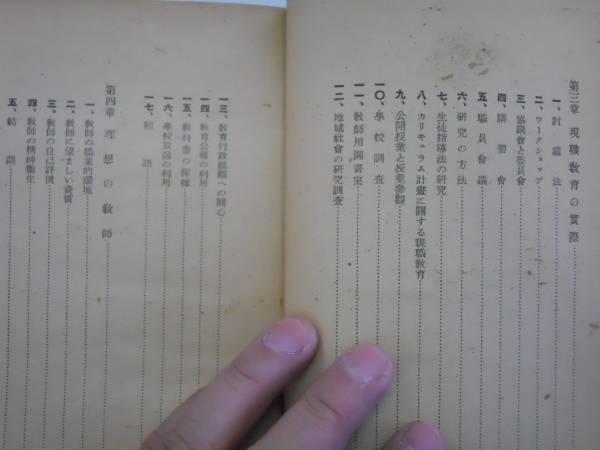 第三章 現職教育の實際
一、討議法
二、ワークショップ
三、協議會と委員會
四、講習會
五、職員會議
六、研究の方法
七、生徒指導法の研究
八、カリキュラム計畫に關する現職教育
九、公開授業と授業參觀
一〇、學校調査
一一、教師用圖書室
一二、地域社會の研究調査
一三、教育行政組織への關心
一四、教育公報の利用
一五、教科書の採擇
一六、學校放送の利用
一七、結語
第四章 理想の教師
一、教師の職業的環境
二、教師に望ましい資質
三、教師の自己評價
四、教師の精神衞生
五、結語